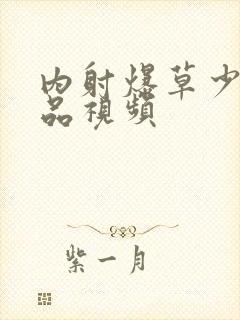 内射爆草少
品視頻
紫一月